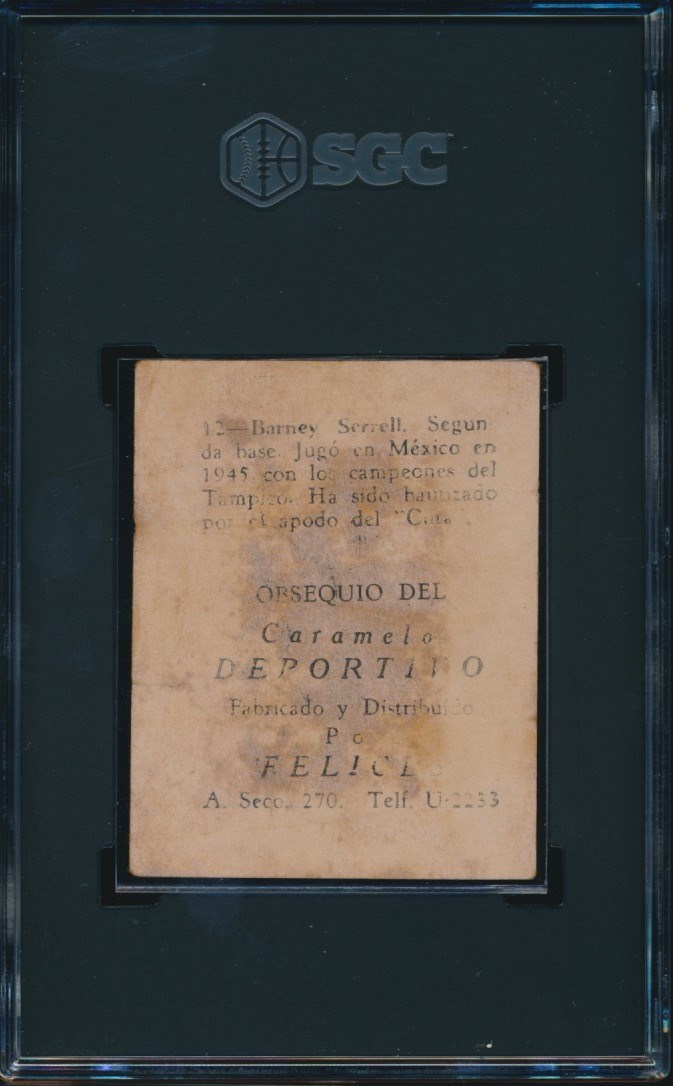 SGC
12—Barney Serrell. Segun
da base. Jugó en México en
1945 con los campeones del
Tampico. Ha sido bautizado
por el apodo del
OBSEQUIO DEL
Caramelo
DEPORTIVO
Fabricado y Distribuido
Po
FELICES
A. Seco. 270. Telf. U-2233